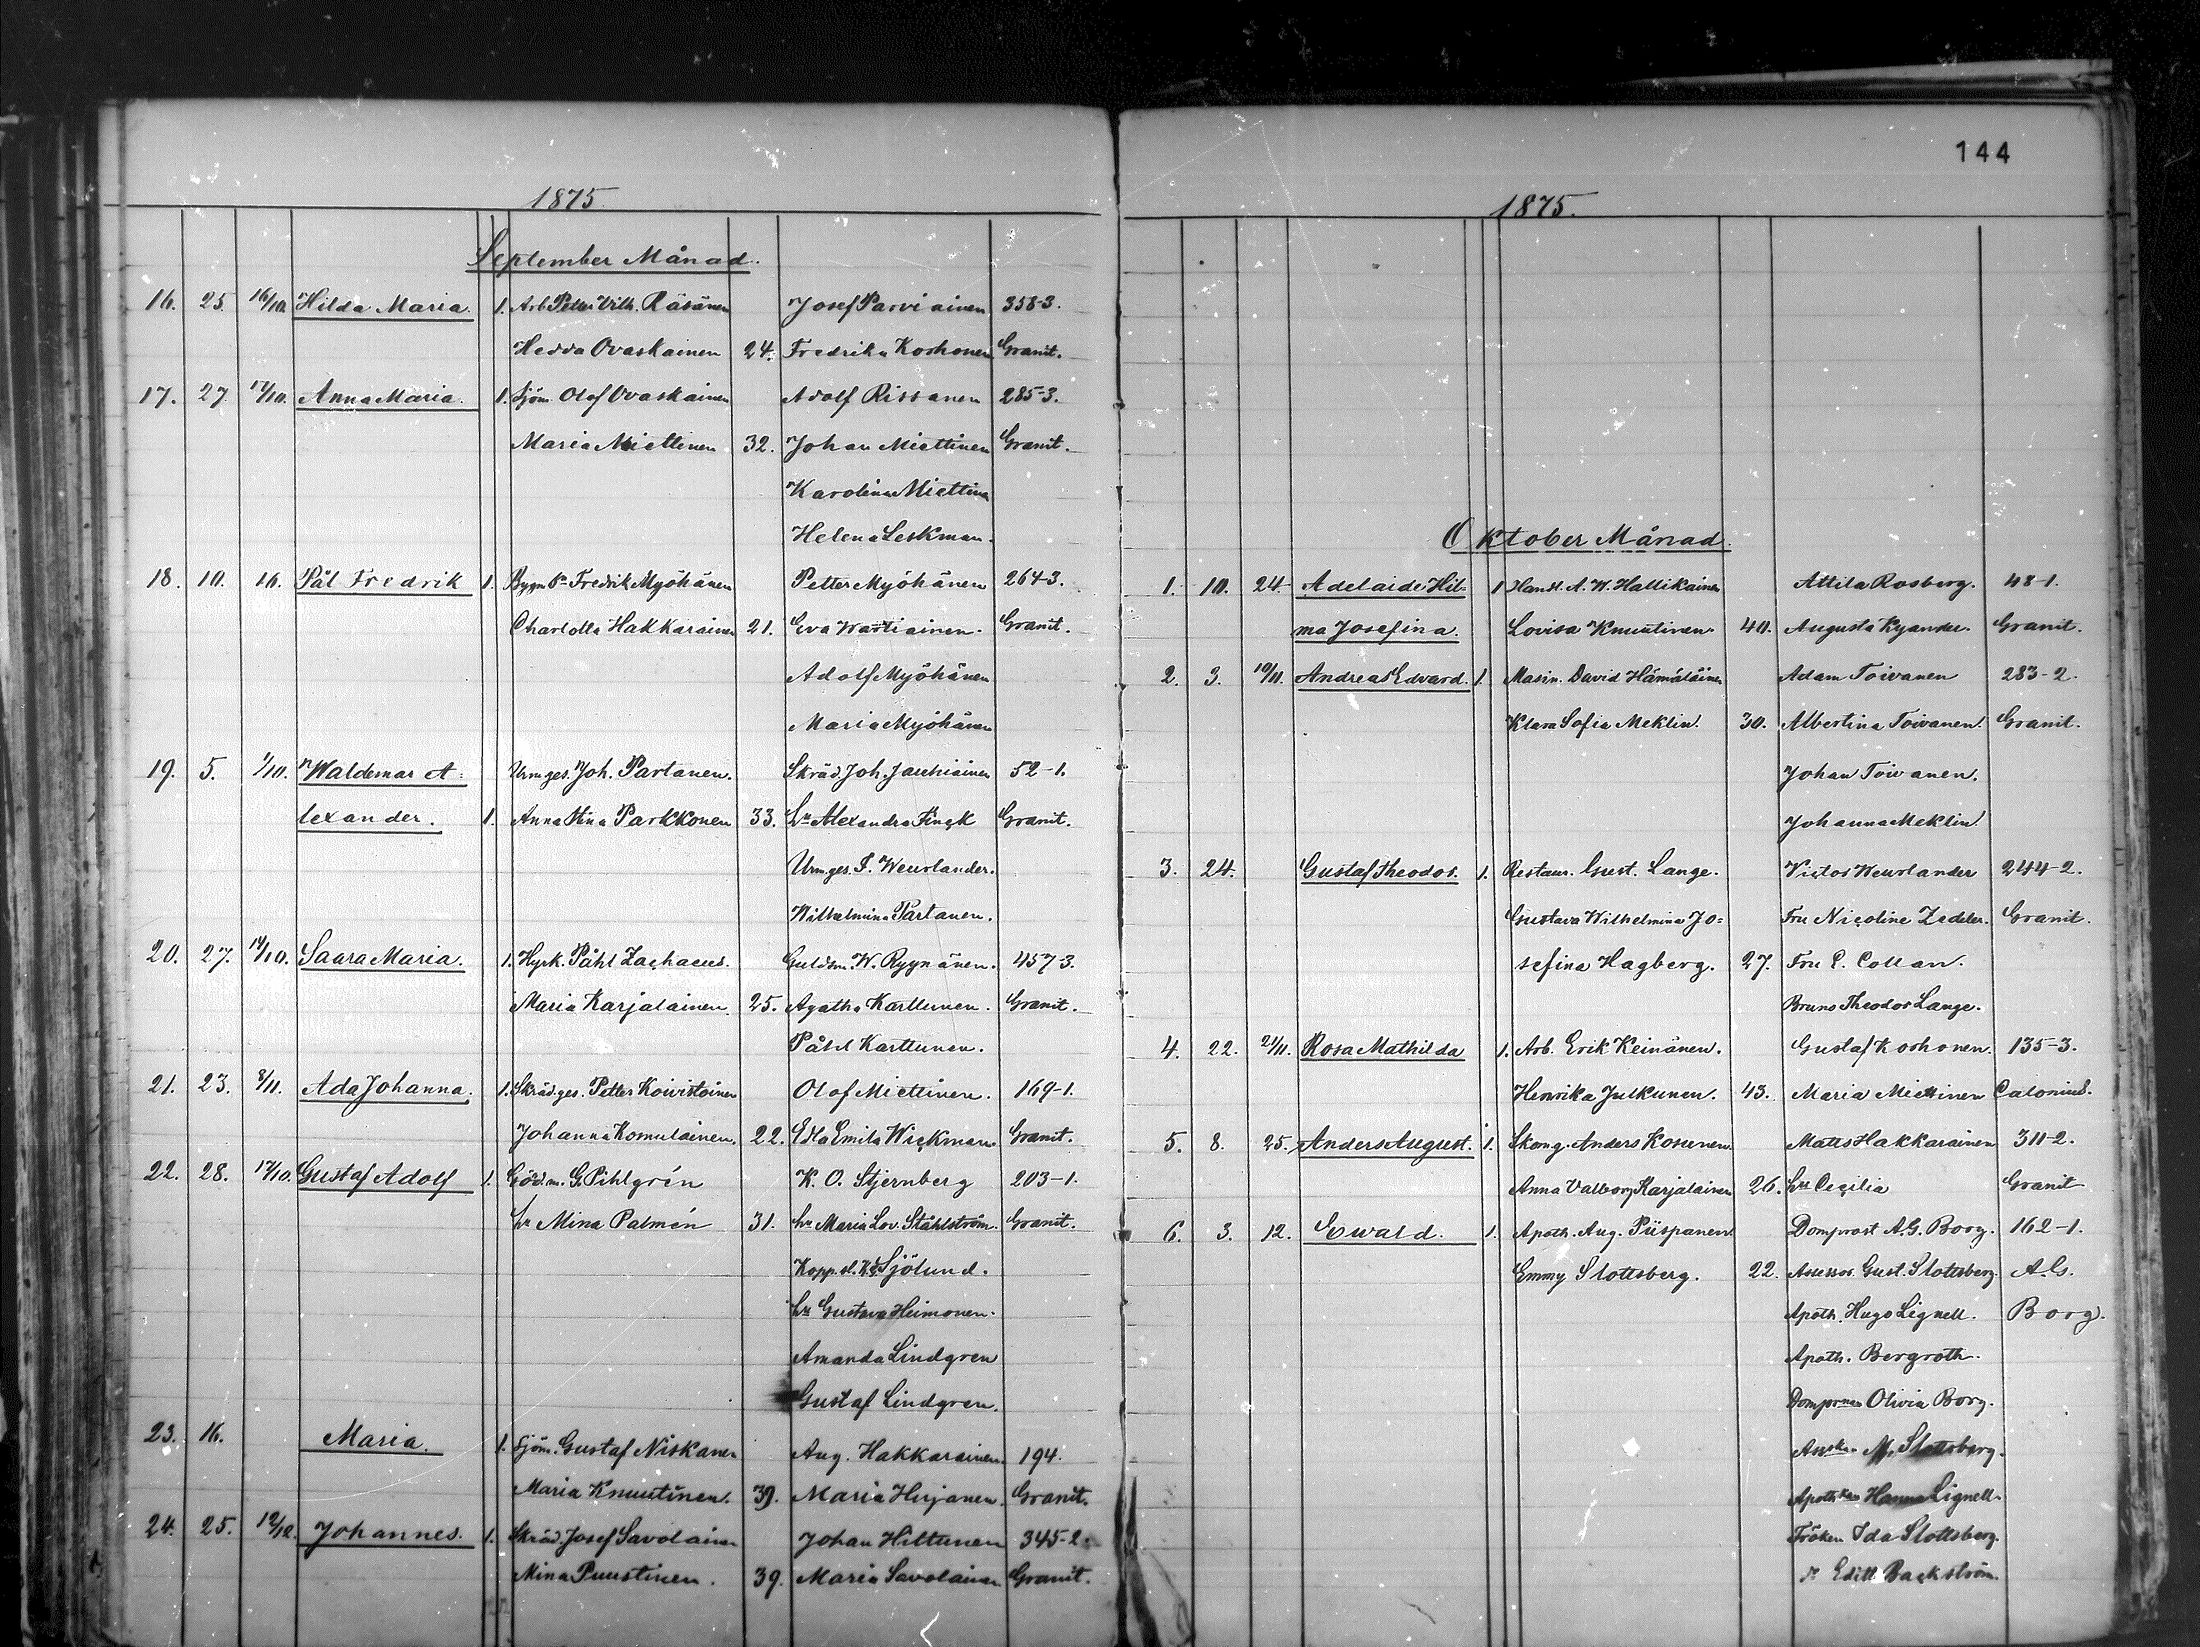 144
1875.
September Månad.
16. 25. 16/10. Hilda Maria. 1. Arb. Petter Vilh. Räsänen Josef Parviainen 358-3.
Hedda Ovaskainen 24. Fredrika Korhonen Granit.
17. 27. 17/10. Anna Maria. 1. Sjöm. Olof Ovaskainen Adolf Rissanen 285-3.
Maria Miettinen 32. Johan Miettinen Granit.
Karolina Miettinen
Helena Leskman.
18. 10. 16. Pål Fredrik 1. Fredrik Myöhänen Petter Myöhänen 264-3.
Charlotta Hakkarainen 21. Eva Wartiainen. Granit.
Adolf Myöhänen
Maria Myöhänen
19. 5. 1/10. Waldemar A- Urm.ges. Joh. Partanen. Skräd. Joh. 52-1.
lexander. 1. Anna Stina Parkkonen 33. hu Alexandra Finck Granit.
Urm.ges. Weurlander.
Wilhelmina Partanen.
20. 27. 14/10. Saara Maria. 1. Hyrk. Påhl Zachaeus. Guldsm. W. Ryynänen. 457-3.
Maria Karjalainen. 25. Agatha Karttunen. Granit.
Påhl Karttunen.
21. 23. 8/11. Ada Johanna. 1. Skräd.ges. Petter Koivistoinen Olof Miettinen. 169-1.
Johanna Komulainen. 22. Edla Emila Wickman Granit.
22. 28. 17/10. Gustaf Adolf 1. G. Pihlgrén K. O. Stjernberg 203-1.
hu Mina Palmén 31. hu Maria Lov. Ståhlström. Granit.
Sjölund.
hu Gustava Heimonen.
Amanda Lindgren
Gustaf Lindgren.
23. 16. Maria. 1. Sjöm. Gustaf Niskanen Aug. Hakkarainen 194.
Maria Knuutinen. 39. Maria Hirjanen. Granit.
24. 25. 12/12. Johannes. 1. Skräd. Josef Savolainen Johan Hiltunen 345-2.
Mina Puustinen. 39. Maria Savolainen Granit.
1875.
Oktober Månad.
1. 10. 24. Adelaide Hil- 1 Handl. A. W. Hallikainen Attila Rosberg. 48-1.
ma Josefina. Lovisa Knuutinen. 40. Augusta Kyander. Granit.
2. 3. 10/11. Andreas Edvard. 1. Masin. David Hämäläinen Adam Toivanen 283-2.
Klara Sofia Meklin. 30. Albertina Toivanen. Granit.
Johan Toivanen.
Johanna Meklin.
3. 24. Gustaf Theodor. 1. Restaur. Gust. Lange. Victor Weurlander 244-2.
Gustava Wilhelmina Jo- Fru Nicoline Zedeler. Granit.
sefina Hagberg. 27. Fru C. Collan.
Bruno Theodor Lange.
4. 22. 21/11. Rosa Mathilda 1. Arb. Erik Keinänen. Gustaf Korhonen. 135-3.
Henrika Julkunen. 43. Maria Miettinen Calonius.
5. 8. 25. Anders August. 1. Skomg. Anders Kosunen. Matts Hakkarainen 311-2.
Anna Valborg Karjalainen 26. hu Cecilia Granit
6. 3. 12. Ewald. 1. Apoth. Aug. Piispanen. Domprost A. G. Borg. 162-1.
Emmy Slottsberg. 22. Assessor Gust. Slottsberg. A. G.
Apoth. Hugo Lignell. Borg.
Apoth. Bergroth.
Olivia Borg.
M. Slottsberg.
Hanna Lignell.
Fröken Ida Slottsberg.
Edith Backström.